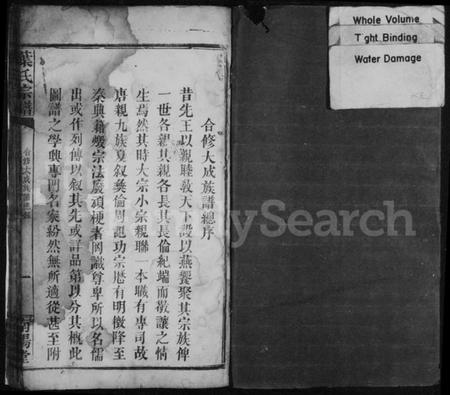 Whole Volume
Tight Binding
Water Damage
MySearch
合修大成族譜總序
昔先王以親睦敦天下設以燕饗聚其宗族俾
一世各親其親各長其長倫紀端而敬讓之情
生焉然其時大宗小宗親聯一本職有專司故
唐親九族夏叙彜倫周記功宗厯有明徵降至
秦典籍燬宗法廢頑梗者罔識尊卑所以名儒
出或作列傳以叙其先或詳品第以分其概此
圖譜之學興專門名家紛然無所適從甚至附
葉氏宗譜
合修大成族譜
一
南陽堂